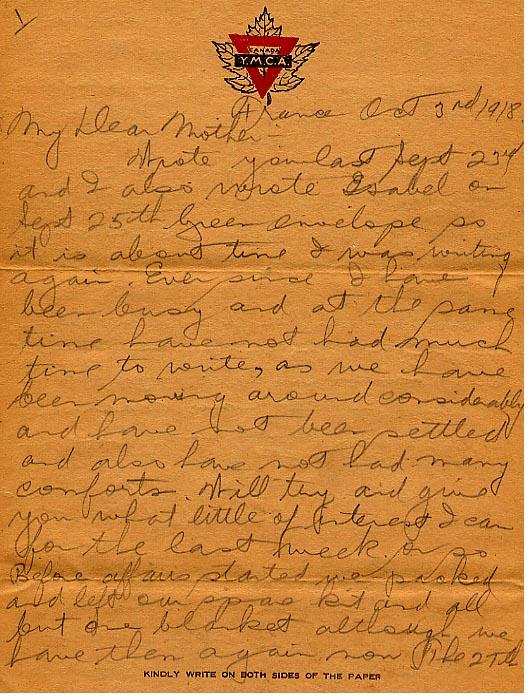 CANADA
Y.M.C.A.
France Oct 3rd 1918
My Dear Mother
Wrote you last Sept 23rd
and I also wrote Isabel on
Sept 25th green envelope so
it is about time I was writing
again. Ever since I have
been busy and at the same
time have not had much
time to write, as we have
been moving around considerably
and have not been settled
and also have not had many
comforts. Will try and give
you what little of interest I can
for the last week or so.
Before affairs started we packed
and left our spare kit and all
but one blanket although we
have them again now. The 27th
KINDLY WRITE ON BOTH SIDES OF THE PAPER